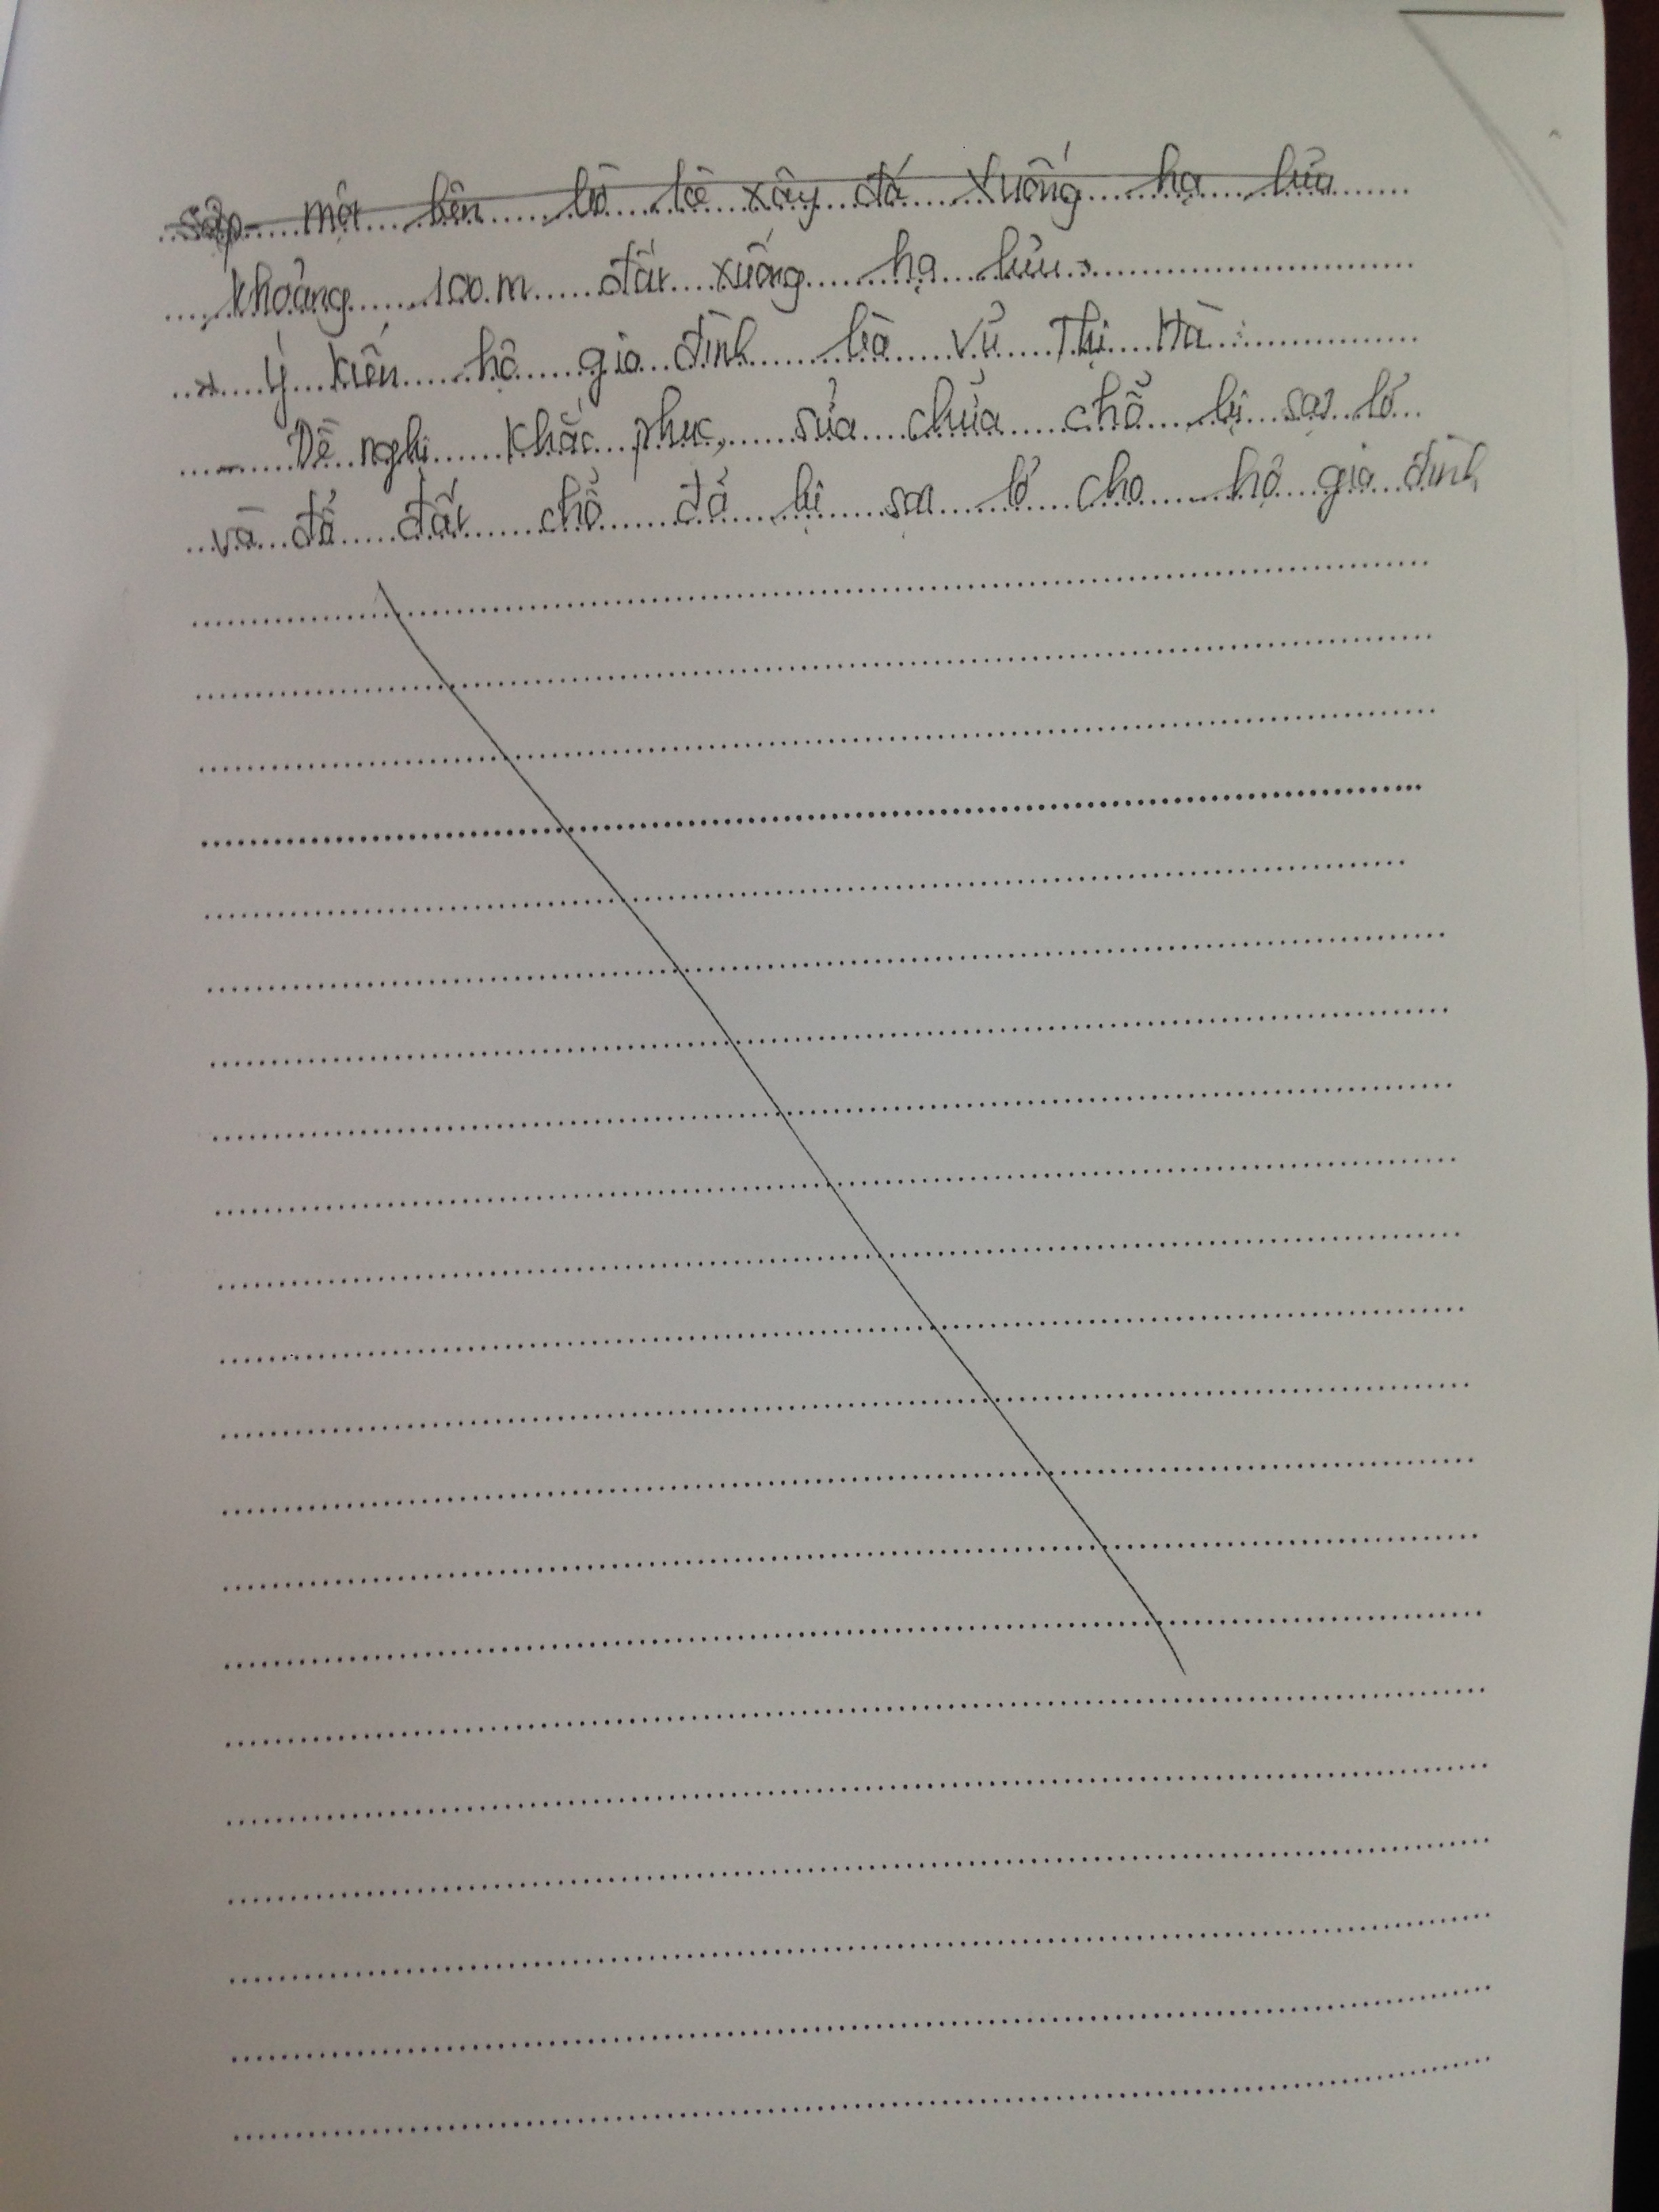 sập một bên bờ kè xây đá xuống hạ lưu
khoảng 100m đất xuống hạ lưu.
* Ý kiến hộ gia đình bà Vũ Thị Hà:
- Đề nghị khắc phục, sửa chửa chỗ bị sạt lở
và đổ đất chỗ đã bị sạt lở cho hộ gia đình